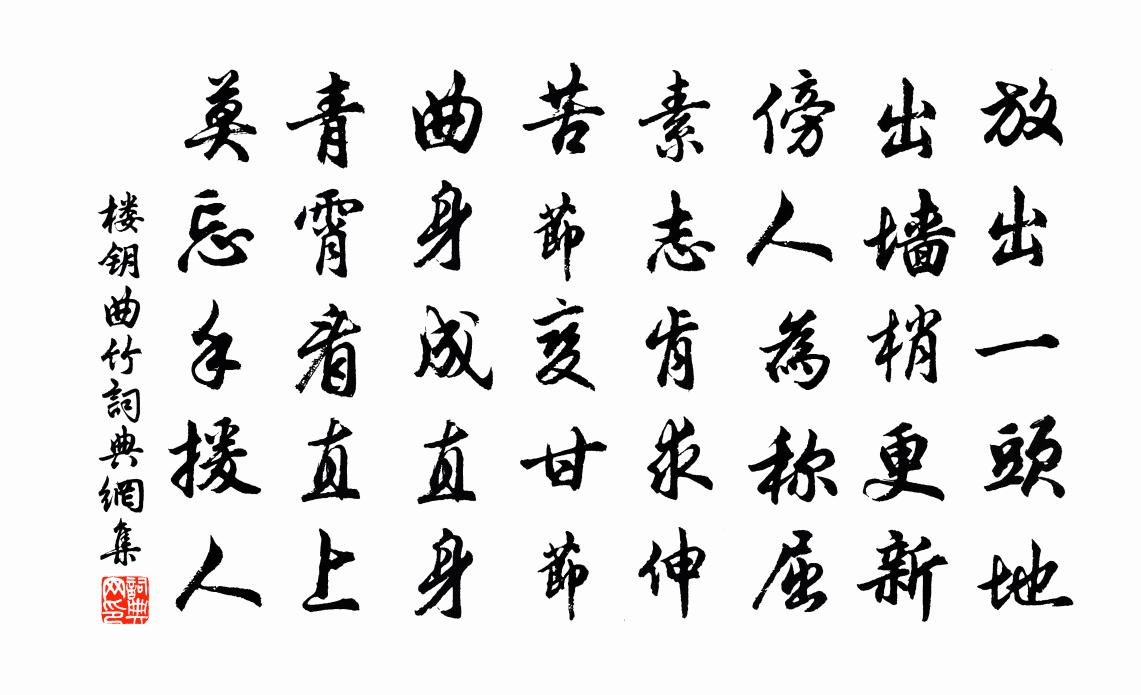 放出一頭地
出墙梢更新
傍人為称屈
素志肯求伸
苦節变甘節
曲身成直身
青霄看直上
莫忘手援人
楼钥曲竹詞典網集
詞典网印